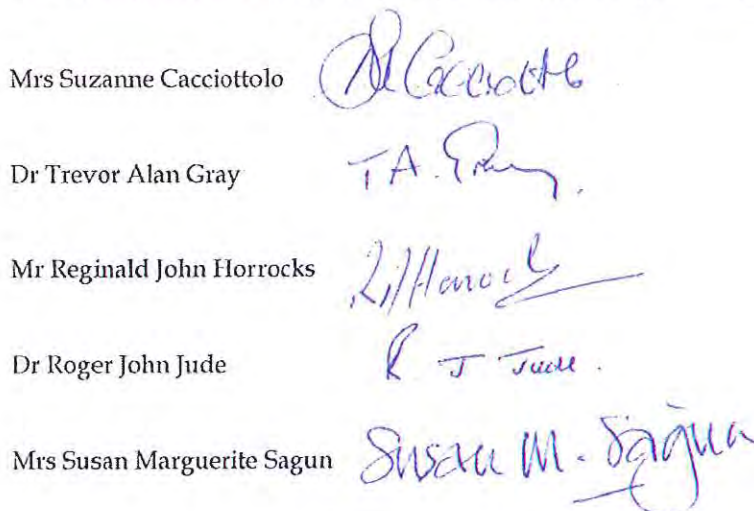 Mrs Suzanne Cacciottolo
Dr Trevor Alan Gray T A. Gray.
Mr Reginald John Horrocks
Dr Roger John Jude R J Jude.
Mrs Susan Marguerite Sagun Susan M. Sagun